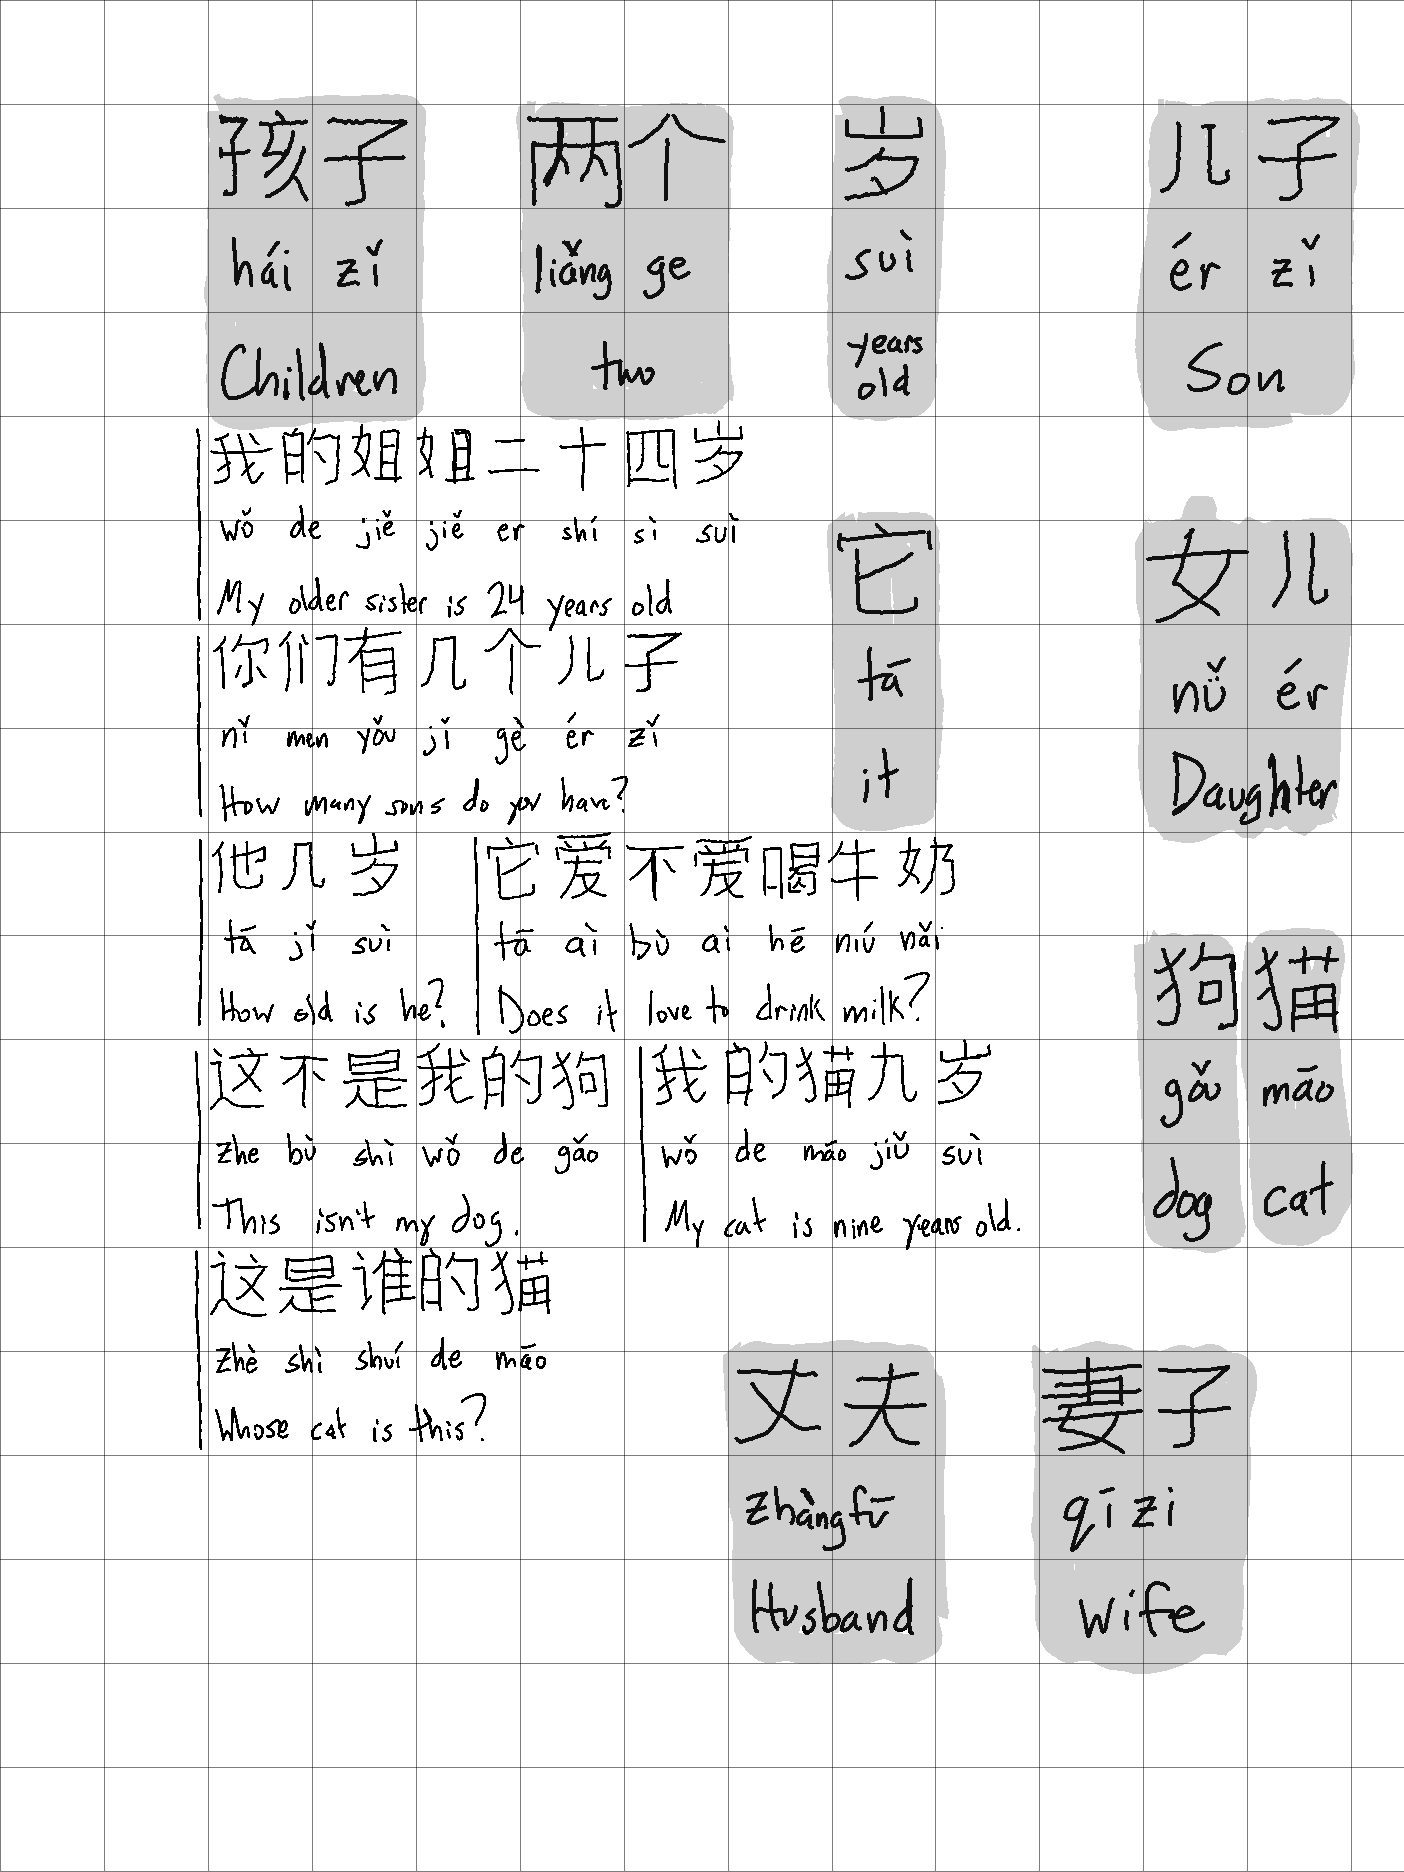 孩子 两个 岁 儿子
hái zǐ liǎng ge suì ér zǐ
Children two years old Son
我的姐姐二十四岁
wǒ de jiě jiě er shí sì suì
My older sister is 24 years old
你们有几个儿子
nǐ men yǒu jǐ gè ér zǐ
How many sons do you have?
它
tā
it
女儿
nǚ ér
Daughter
他几岁
tā jǐ suì
How old is he?
它爱不爱喝牛奶
tā ài bù ai hē niú nǎi
Does it love to drink milk?
狗 猫
gǒu māo
dog cat
这不是我的狗
zhe bù shì wǒ de gǎo
This isn't my dog.
我的猫九岁
wǒ de māo jiǔ suì
My cat is nine years old.
这是谁的猫
zhè shì shuí de māo
Whose cat is this?
丈夫 妻子
zhàngfū qī zi
Husband Wife